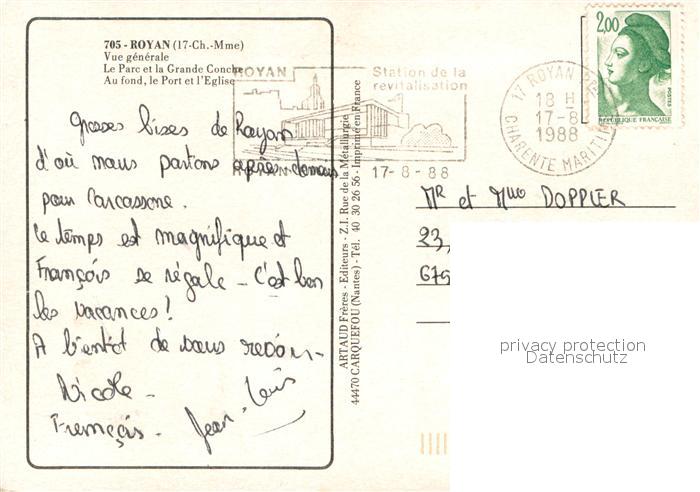 705 - ROYAN (17-Ch.-Mme)
Vue générale
Le Parc et la Grande Conche
Au fond, le Port et l'Eglise
Grosses bises de Royan
d'où nous partons après demain
pour Carcassonne.
Le temps est magnifique et
François se régale - C'est bon
les vacances !
A bientôt de vous revoir -
Nicole -
François - Jean-Louis
ARTAUD Frères - Editeurs - Z.I. Rue de la Métallurgie
44470 CARQUEFOU (Nantes) - Tél. 40 30 26 56 - Imprimé en France
ROYAN
Station de la
revitalisation
17-8-88
17 ROYAN
18 H
17-8
1988
CHARENTE MARITIME
2,00
POSTES
REPUBLIQUE FRANÇAISE
Mr et Mme DOPPLER
23,
679
privacy protection
Datenschutz